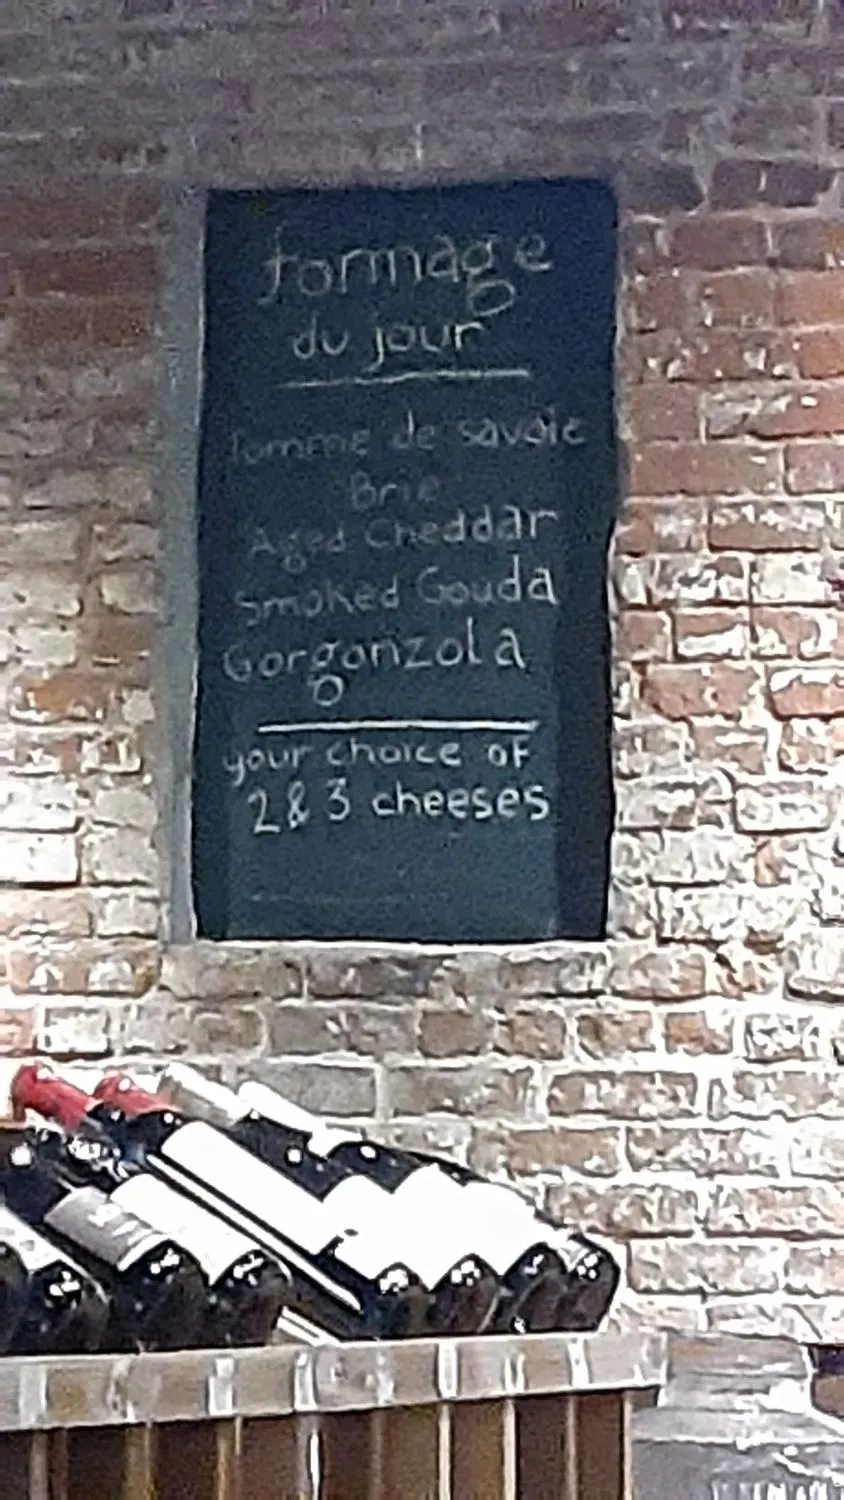 formage
du jour
Tomme de savoie
Brie
Aged Cheddar
Smoked Gouda
Gorgonzola
your choice of
2 & 3 cheeses